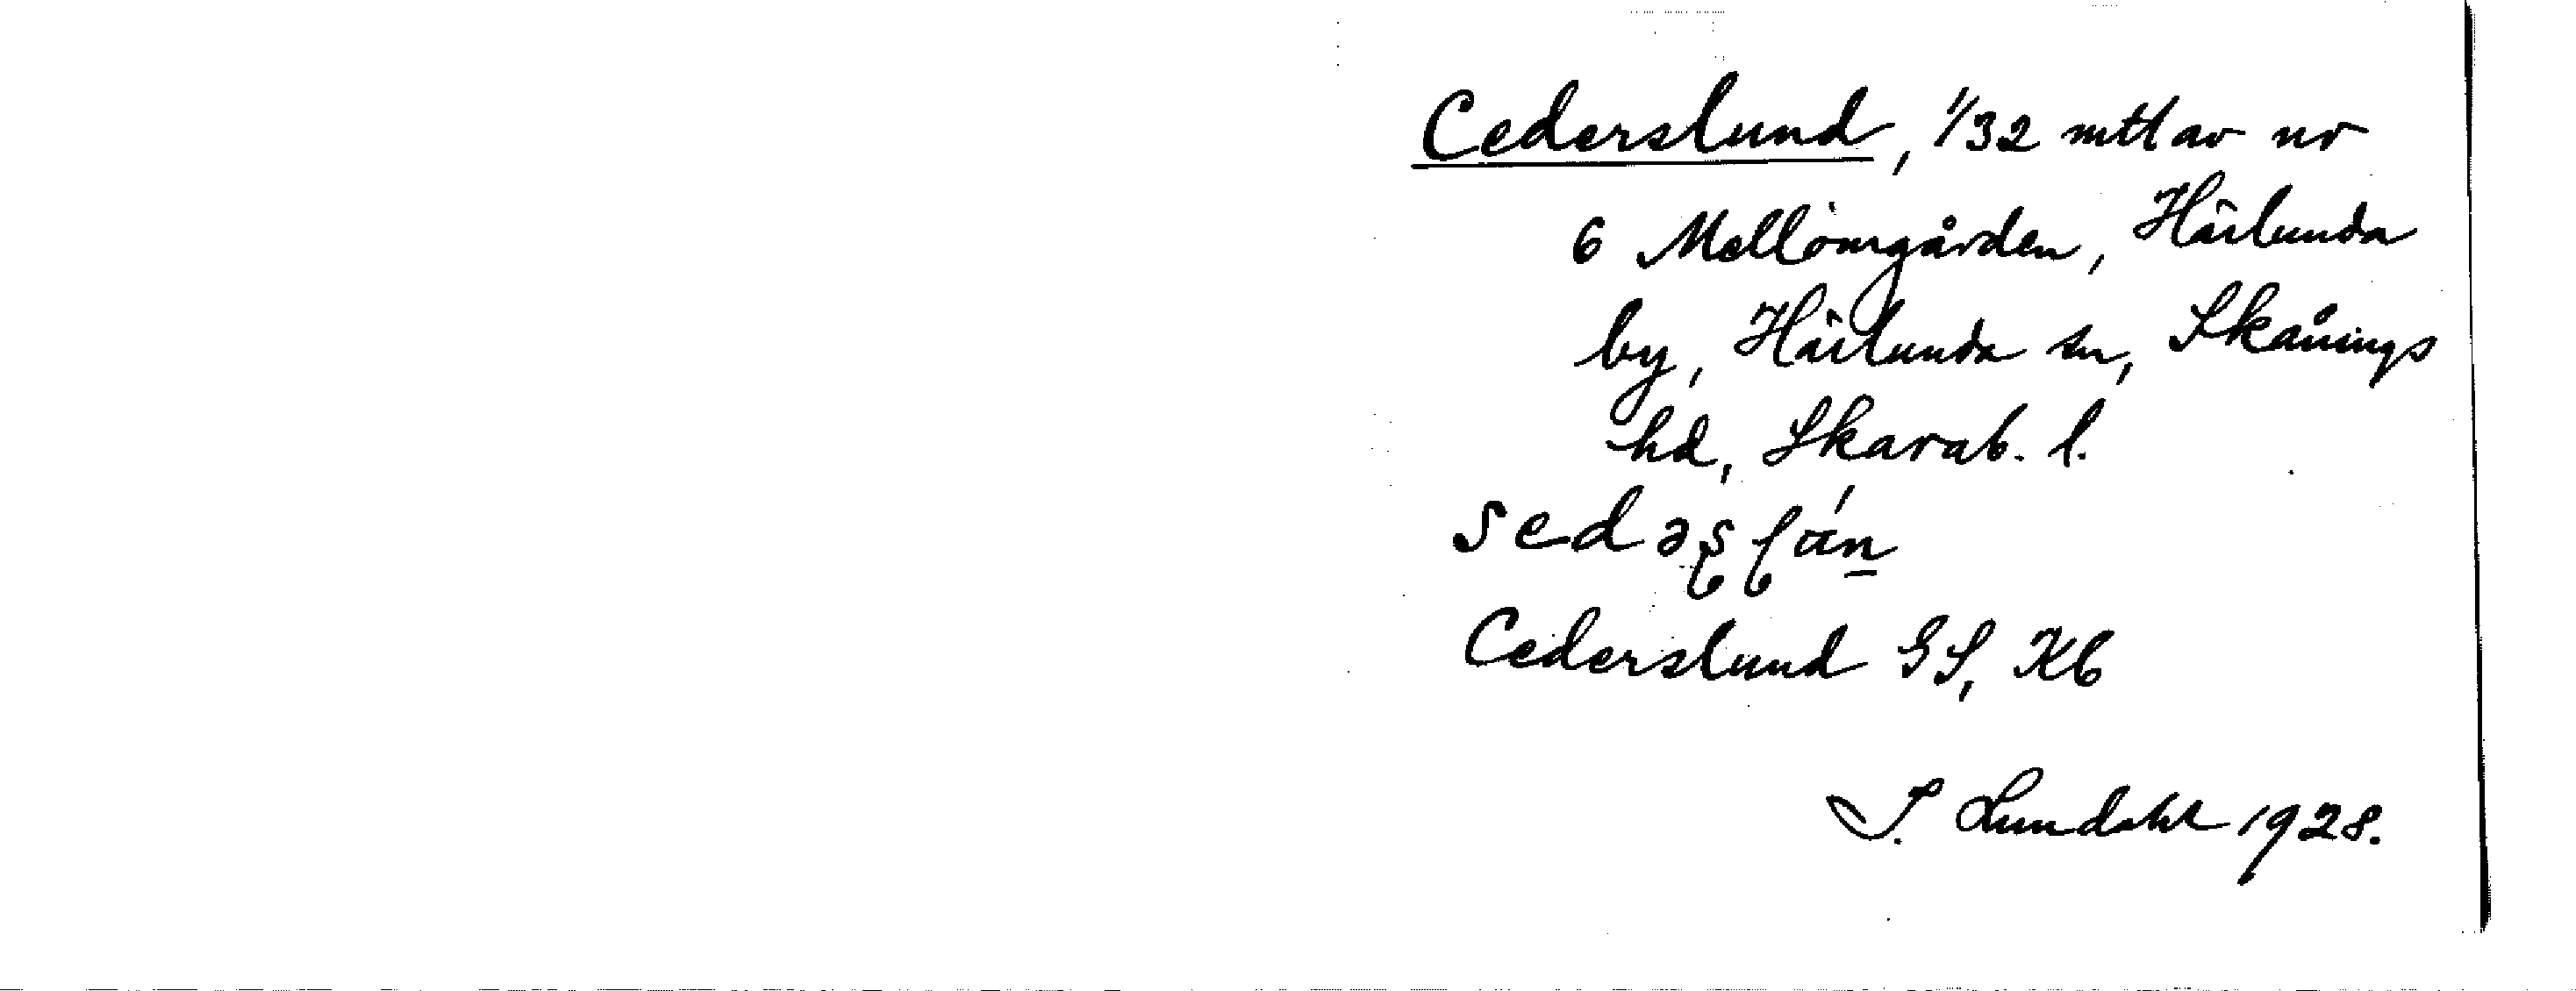 Cederslund, 1/32 mtl av nr
6 Mellomgården, Härlunda
by, Härlunda sn, Skånings
hd, Skarab. l.
Cederslund GS, Kb
I. Lundahl 1928.